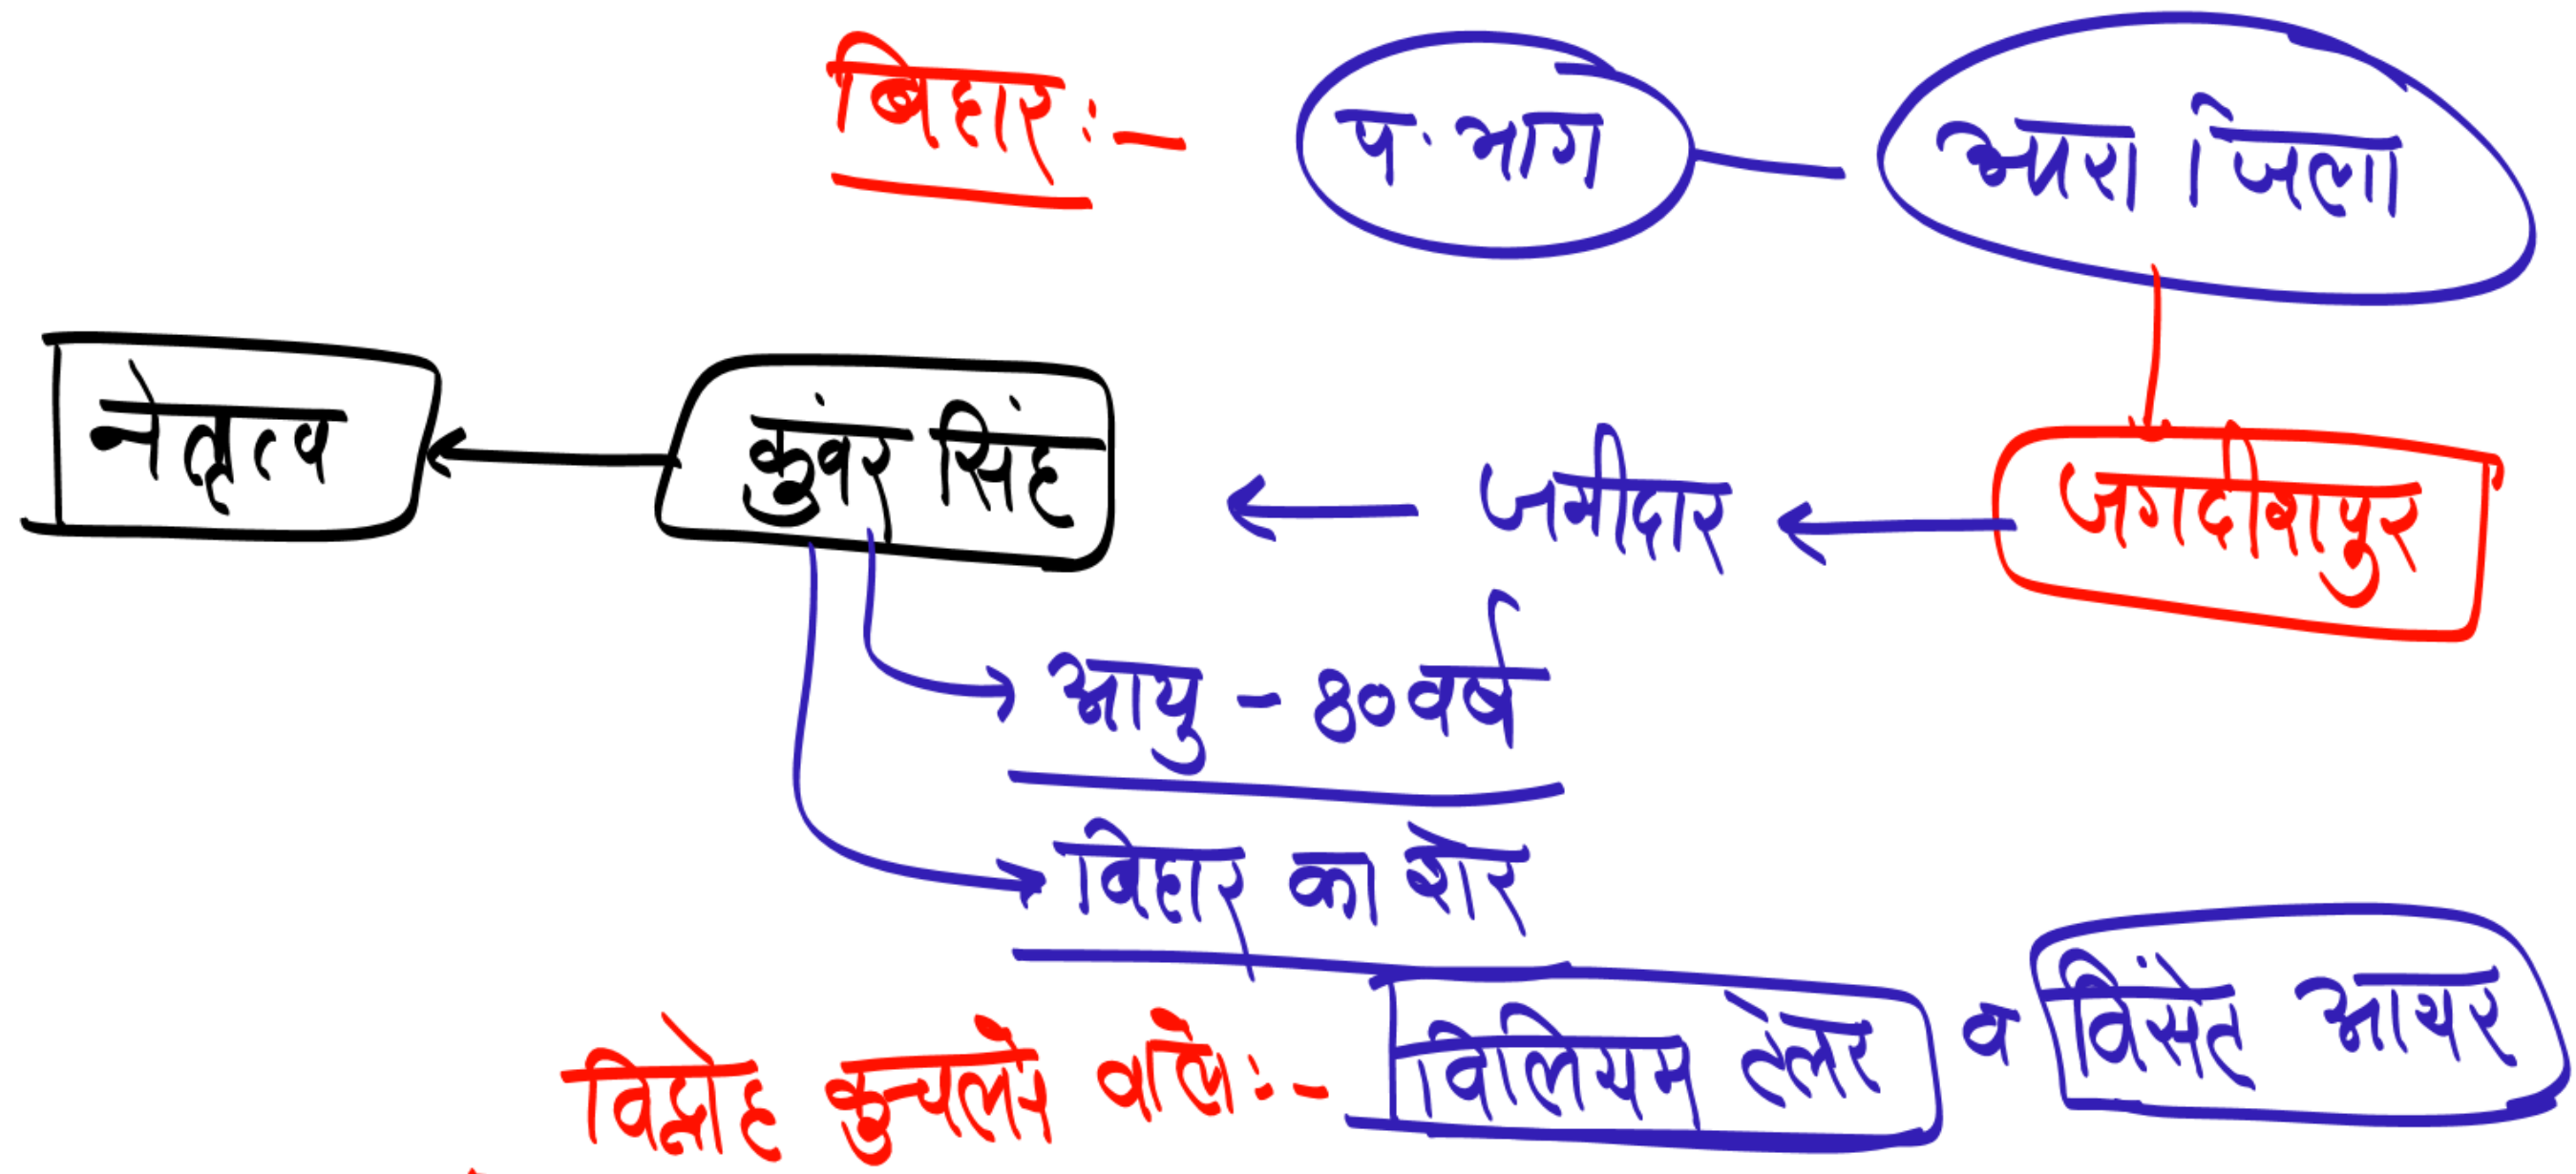 बिहार :- प. भाग — आरा जिला
नेतृत्व ← कुंवर सिंह ← जमीदार ← जगदीशपुर
→ आयु - 80 वर्ष
→ बिहार का शेर
विद्रोह कुचलने वाले :- विलियम टेलर व विंसेट आयर